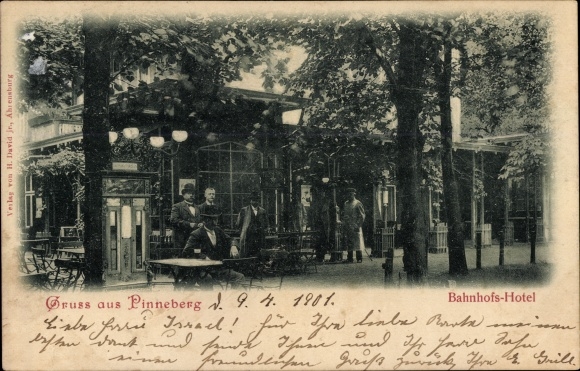 Verlag von H. David jr., Ahrensburg
Gruss aus Pinneberg d. 9. 4. 1901. Bahnhofs-Hotel
Liebe Frau Israel! für Ihre liebe Karte meinen
besten Dank und sende Ihnen und Ihr Herr Sohn
einen freundlichen Gruß zurück Ihre E.